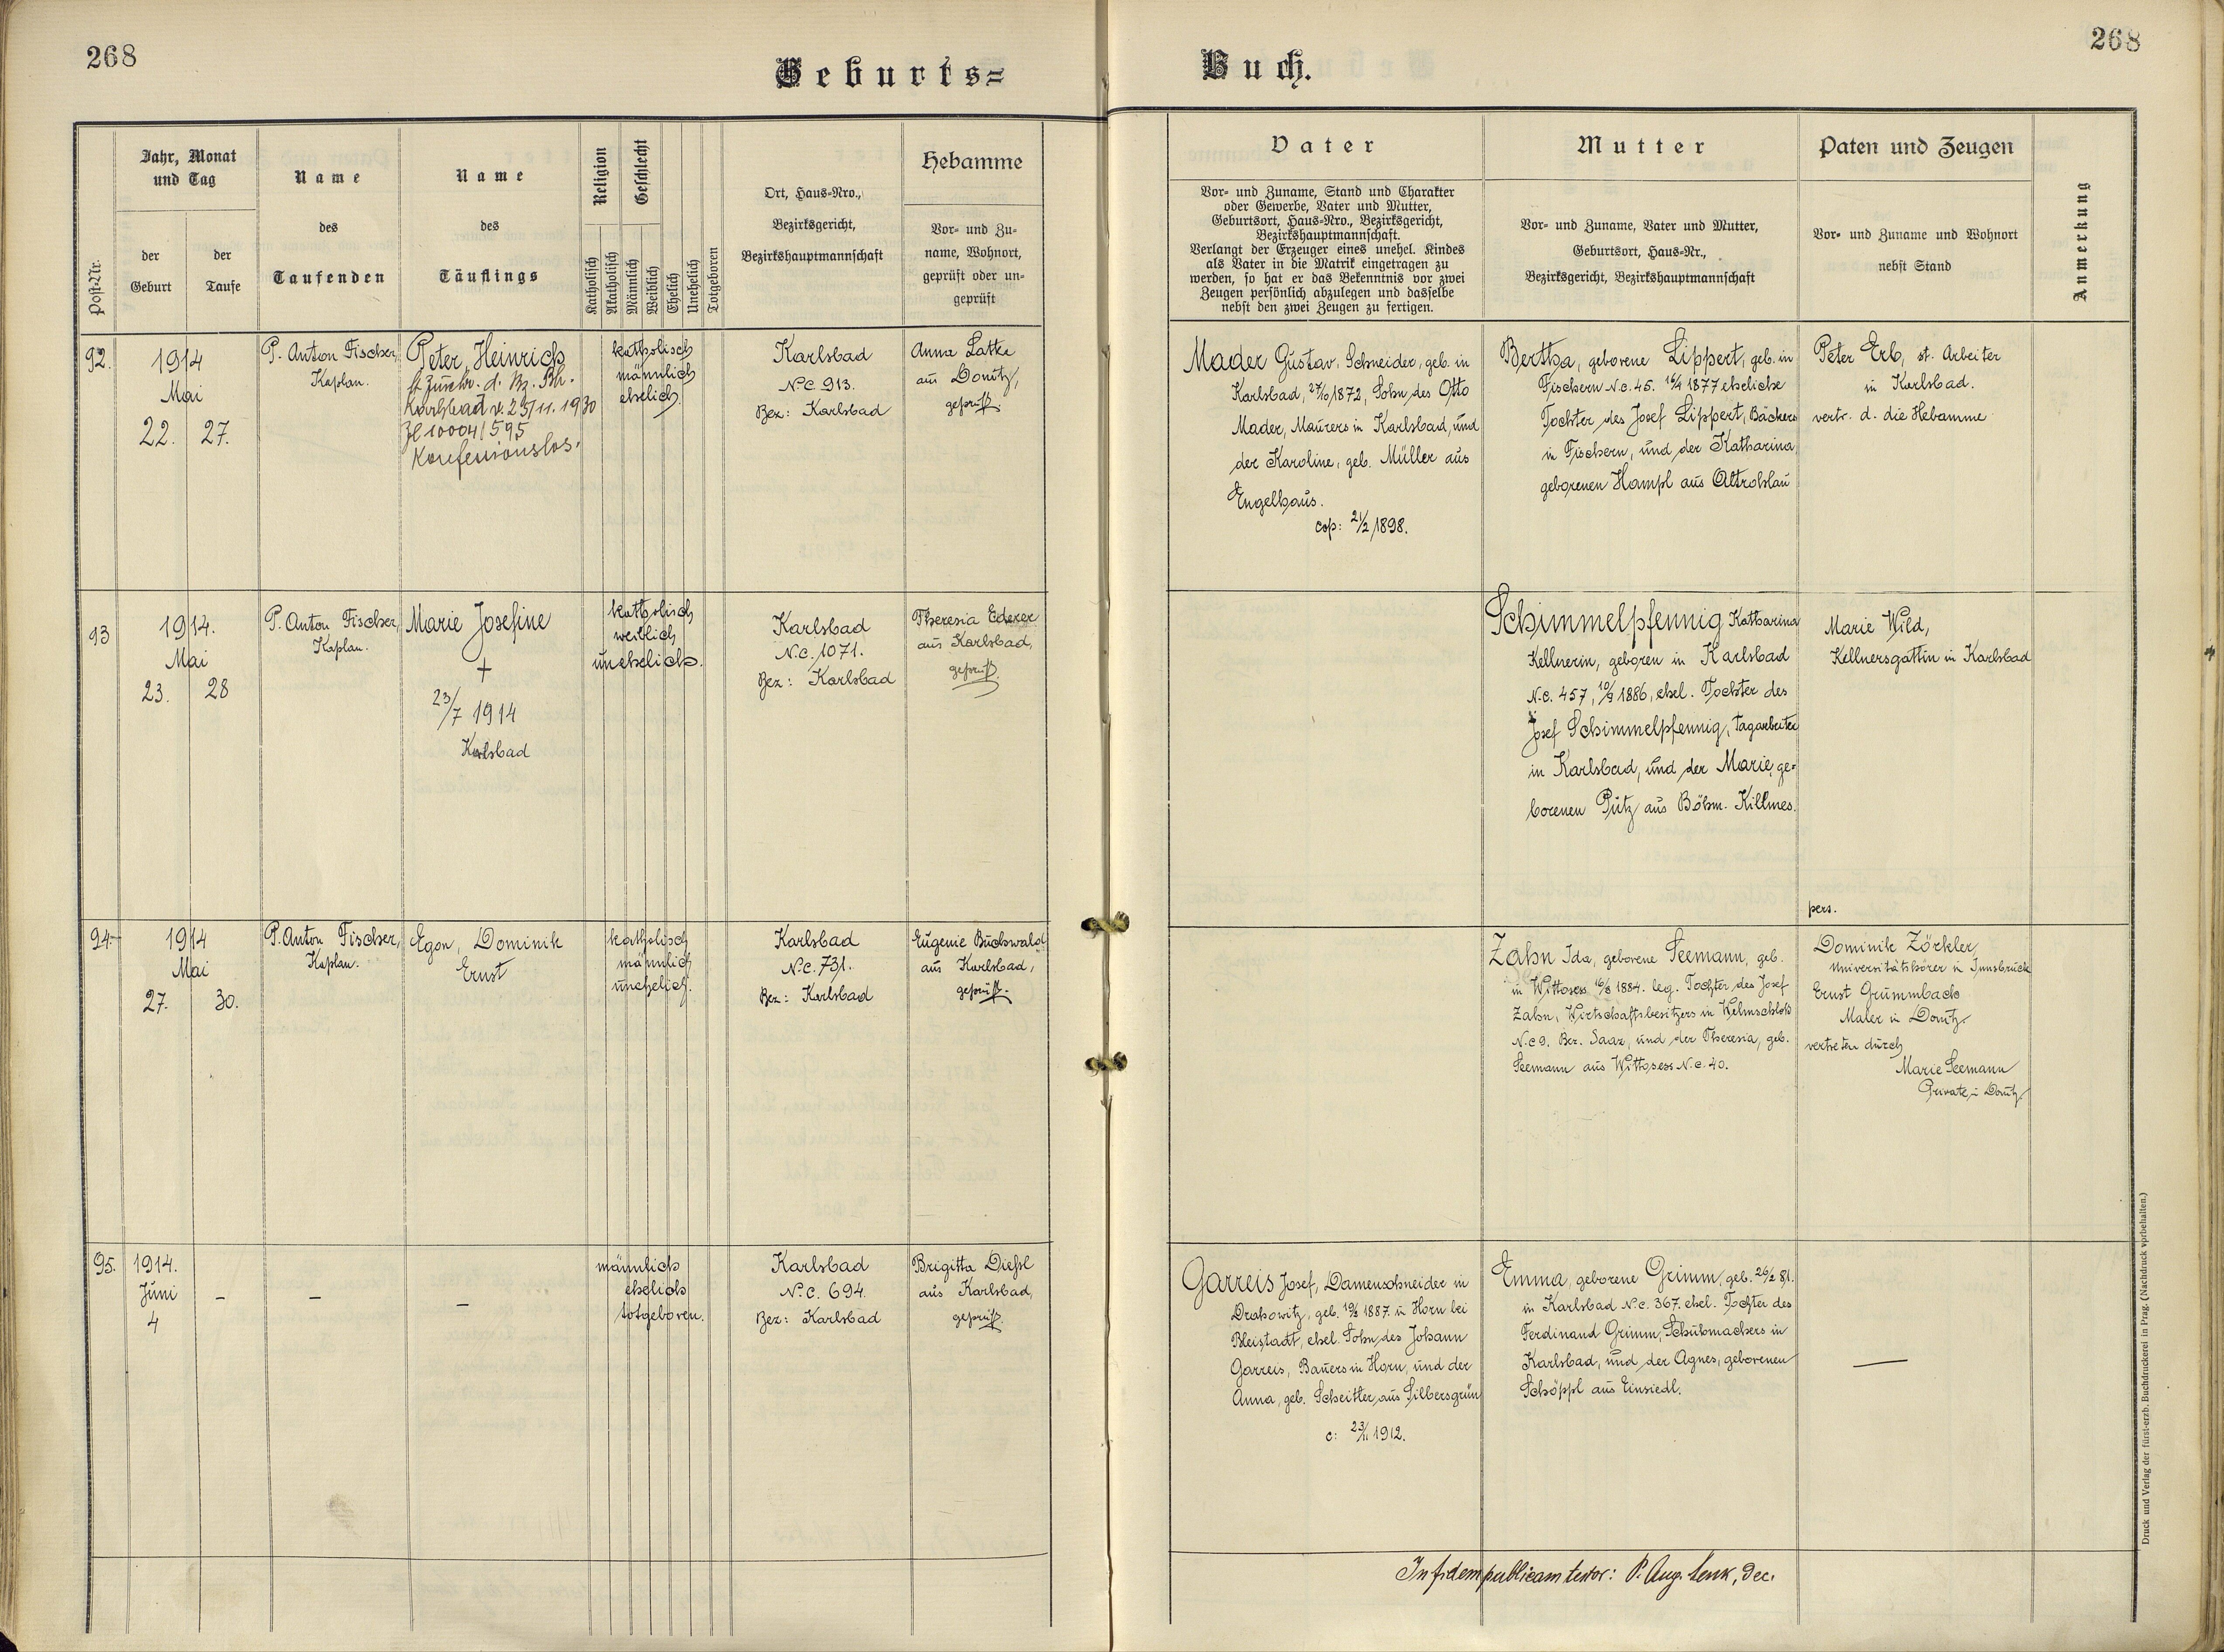 268
Geburts=
Buch.
268
Post-Nr.
Jahr, Monat
und Tag
der
Geburt
der
Taufe
Name
des
Taufenden
Name
des
Täuflings
Religion
Katholisch
Akatholisch
Geschlecht
Männlich
Weiblich
Ehelich
Unehelich
Totgeboren
Ort, Haus-Nro.,
Bezirksgericht,
Bezirkshauptmannschaft
Hebamme
Vor- und Zu-
name, Wohnort,
geprüft oder un-
geprüft
Vater
Vor- und Zuname, Stand und Charakter
oder Gewerbe, Vater und Mutter,
Geburtsort, Haus-Nro., Bezirksgericht,
Bezirkshauptmannschaft.
Verlangt der Erzeuger eines unehel. Kindes
als Vater in die Matrik eingetragen zu
werden, so hat er das Bekenntnis vor zwei
Zeugen persönlich abzulegen und dasselbe
nebst den zwei Zeugen zu fertigen.
Mutter
Vor- und Zuname, Vater und Mutter,
Geburtsort, Haus-Nr.,
Bezirksgericht, Bezirkshauptmannschaft
Paten und Zeugen
Vor- und Zuname und Wohnort
nebst Stand
Anmerkung
92.
1914
Mai
22. 27.
P. Anton Fischer,
Kaplan.
Peter, Heinrich
lt Zuschr. d. Bz. Bh.
Karlsbad v. 25/11. 1930
Zl 10004/595
Konfessionslos.
katholisch
männlich
ehelich.
Karlsbad
N.C. 913.
Bez: Karlsbad
Anna Latka
aus Donitz,
geprüft.
Mader Gustav, Schneider, geb. in
Karlsbad, 27/10 1872, Sohn des Otto
Mader, Maurers in Karlsbad, und
der Karoline, geb. Müller aus
Engelhaus.
cop: 21/2 1898.
Bertha, geborene Lippert, geb. in
Fischern N.c. 45. 1877 eheliche
Tochter des Josef Lippert, Bäckers
in Fischern, und der Katharina
geborenen Hampl aus Altrohlau
Peter Erb, st. Arbeiter
in Karlsbad.
vertr. d. die Hebamme
93
1914.
Mai
23. 28
P. Anton Fischer,
Kaplan.
Marie Josefine
+
23/7 1914
Karlsbad
katholisch
weiblich
unehelich.
Karlsbad
N.c. 1071.
Bez: Karlsbad
Theresia Ederer
aus Karlsbad,
geprüft.
Schimmelpfennig Katharina
Kellnerin, geboren in Karlsbad
N.c. 457, 1886, ehel. Tochter des
Josef Schimmelpfennig, Tagarbeiter
in Karlsbad, und der Marie, ge-
borenen Pütz aus Böhm. Killmes.
Marie Wild,
Kellnersgattin in Karlsbad
pers.
94.
1914
Mai
27. 30.
P. Anton Fischer,
Kaplan.
Egon, Dominik
Ernst
katholisch
männlich
unehelich.
Karlsbad
N.c. 731.
Bez: Karlsbad
Eugenie Buchwald
aus Karlsbad,
geprüft.
Zahn Ida, geborene Seemann, geb.
in Wittosess 1884. leg. Tochter des Josef
Zahn, Wirtschaftsbesitzers in Welmschloss
N.c 9. Bez. Saaz, und der Theresia, geb.
Seemann aus Wittosess N.c. 40.
Dominik Zörkler,
Universitätshörer in Innsbruck
Ernst Grummbach
Maler in Donitz.
vertreten durch
Marie Seemann
Private in Donitz.
95.
1914.
Juni
4
–
–
–
männlich
ehelich
totgeboren.
Karlsbad
N.c. 694.
Bez: Karlsbad
Brigitta Dießl
aus Karlsbad,
geprüft.
Garreis Josef, Damenschneider in
Drahowitz, geb. 1887. in Horn bei
Bleistadt, ehel. Sohn des Johann
Garreis, Bauers in Horn, und der
Anna, geb. Scheitler, aus Silbersgrün
c: 23/11 1912.
Emma, geborene Grimm, geb. 26/2 81.
in Karlsbad N.c. 367. ehel. Tochter des
Ferdinand Grimm, Schuhmachers in
Karlsbad, und der Agnes, geborenen
Schöppl aus Einsiedl.
—
In fidem publicam testor: P. Aug. Lenk, Dec.
Druck und Verlag der fürst-erzb. Buchdruckerei in Prag. (Nachdruck vorbehalten.)